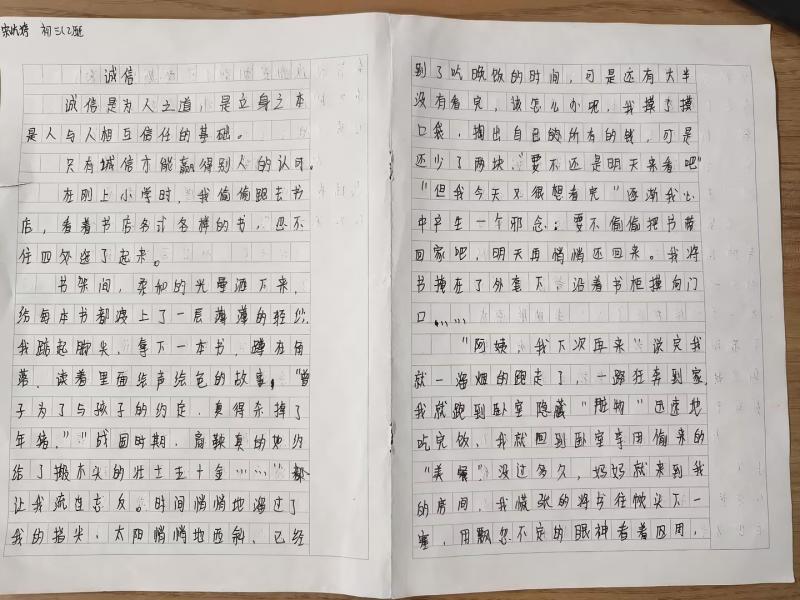 初三(2)班
诚信
诚信是为人之道,是立身之本
是人与人相互信任的基础。
只有城信才能赢得别人的认可。
在刚上小学时,我偷偷跑去书
店,看着书店各式各样的书,忍不
住四处逛了起来。
书架间,柔和的光晕洒下来,
给每本书都渡上了一层薄薄的轻纱
我踮起脚尖,拿下一本书,蹲在角
落,读着里面绘声绘色的故事,"曾
子为了与孩子的约定,真得杀掉了
年猪。""战国时期,商鞅真的她约
给了搬木头的壮士五十金……"
让我流连忘反。时间悄悄地溜过了
我的指尖,太阳悄悄地西斜,已经
到了吃晚饭的时间,可是还有大半
没有看完,该怎么办呢,我摸了摸
口袋,掏出自己的所有的钱,可是
还少了两块,"要不还是明天来看吧"
"但我今天又很想看完"逐渐我心
中产生一个邪念:要不偷偷把书带
回家吧,明天再悄悄还回来。我将
书掩在了外套下,沿着书柜摸向门
口……
"阿姨,我下次再来"说完我
就一溜烟的跑走了,一路狂奔到家,
我就跑到卧室隐藏"脏物"迅速地
吃完饭,我就回到卧室享用偷来的
"美餐"没过多久,妈妈就来到我
的房间,我慌张的将书往枕头下一
塞,用飘忽不定的眼神看着四周,